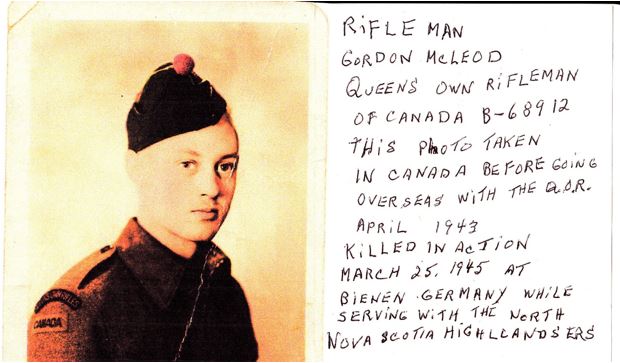 RIFLE MAN
GORDON McLEOD
QUEENS OWN RIFLEMAN
OF CANADA B-68912
THIS PHOTO TAKEN
IN CANADA BEFORE GOING
OVERSEAS WITH THE Q.O.R.
APRIL 1943
KILLED IN ACTION
MARCH 25, 1945 AT
BIENEN GERMANY WHILE
SERVING WITH THE NORTH
NOVA SCOTIA HIGHLLANDSERS
CANADA